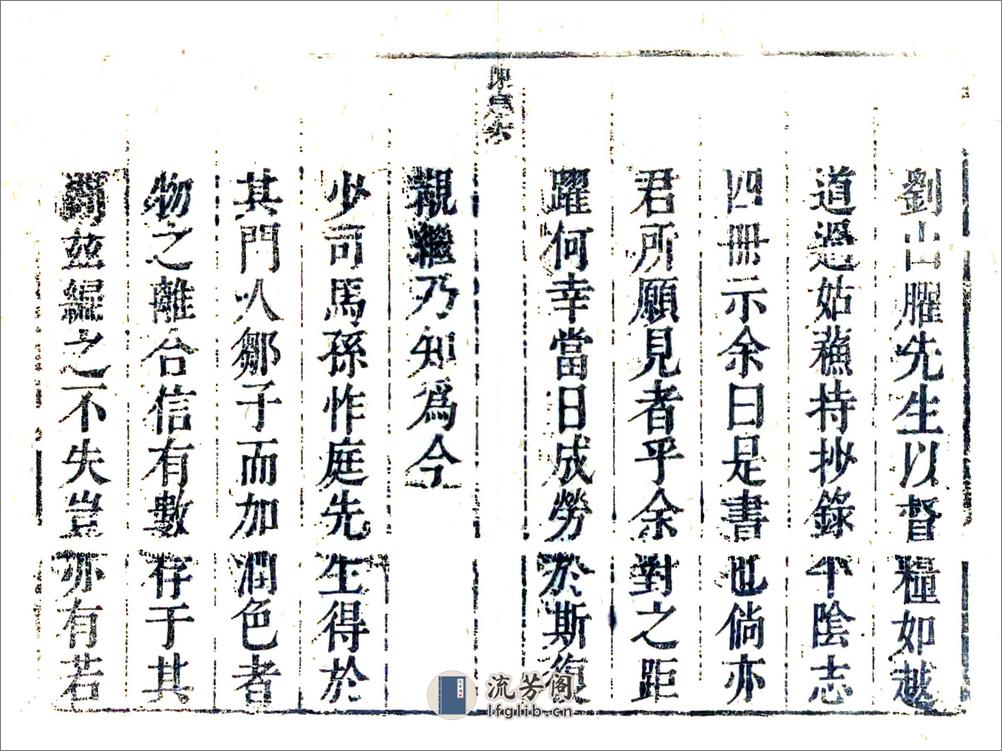 劉山臞先生以督糧如越
道過姑蘓持抄錄平陰志
四冊示余曰是書也倘亦
君所願見者乎余對之距
躍何幸當日成勞於斯復
陳序六
覩繼乃知爲今
少司馬孫怍庭先生得於
其門人鄒子而加潤色者
物之離合信有數存于其
間玆編之不失豈亦有若
流芳阁
lfglib.cn